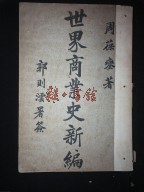 周葆銮著
世界商業史新編
郭則澐署簽